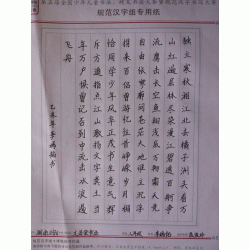 规范汉字组专用纸
独立寒秋湘江北去橘子洲头看万
山红遍层林尽染漫江碧透百舸争
流鹰击长空鱼翔浅底万类霜天竞
自由怅寥廓问苍茫大地谁主沉浮
携来百侣曾游忆往昔峥嵘岁月稠
恰同学少年风华正茂书生意气挥
斥方遒指点江山激扬文字粪土当
年万户侯曾记否到中流击水浪遏
飞舟